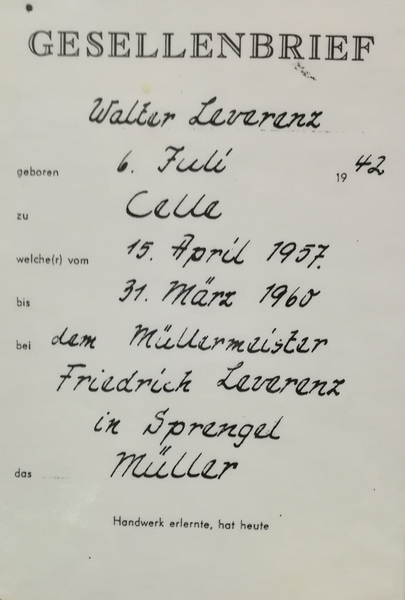 GESELLENBRIEF
Walter Leverenz
geboren 6. Juli 1942
zu Celle
welche(r) vom 15. April 1957.
bis 31. März 1960
bei dem Müllermeister
Friedrich Leverenz
in Sprengel
das Müller
Handwerk erlernte, hat heute